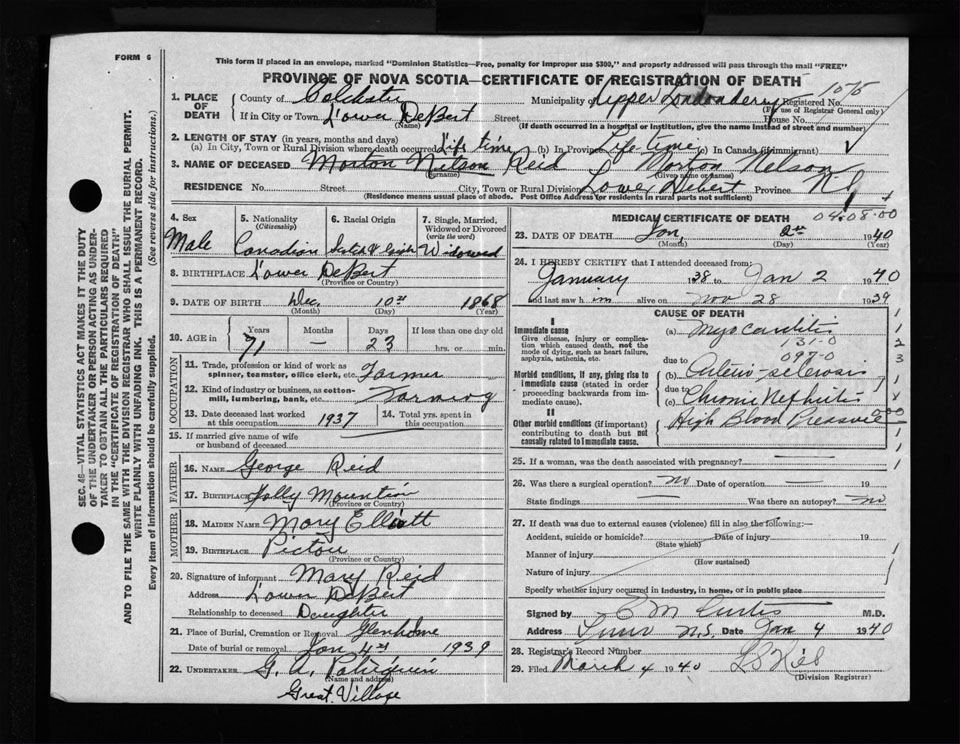 FORM 6
This form if placed in an envelope, marked "Dominion Statistics—Free, penalty for improper use $300," and properly addressed will pass through the mail "FREE"
PROVINCE OF NOVA SCOTIA—CERTIFICATE OF REGISTRATION OF DEATH
SEC. 46—VITAL STATISTICS ACT MAKES IT THE DUTY
OF THE UNDERTAKER OR PERSON ACTING AS UNDER-
TAKER TO OBTAIN ALL THE PARTICULARS REQUIRED
IN THE "CERTIFICATE OF REGISTRATION OF DEATH"
AND TO FILE THE SAME WITH THE DIVISION REGISTRAR WHO SHALL ISSUE THE BURIAL PERMIT.
WRITE PLAINLY WITH UNFADING INK. THIS IS A PERMANENT RECORD.
Every item of information should be carefully supplied. (See reverse side for instructions.)
1. PLACE OF DEATH
County of Colchester Municipality of Upper Londonderry Registered No. 1075
(For use of Registrar General only)
If in City or Town Lower DeBert Street House No.
(Name) (If death occurred in a hospital or institution, give the name instead of street and number)
2. LENGTH OF STAY (in years, months and days)
(a) In City, Town or Rural Division where death occurred Life time (b) In Province Life time (c) In Canada (if immigrant)
3. NAME OF DECEASED Morton Neilson Reid Morton Nelson
(Surname) (Given name or names)
RESIDENCE No. Street City, Town or Rural Division Lower Debert Province N.S.
(Residence means usual place of abode. Post Office Address for residents in rural parts not sufficient)
4. Sex
Male
5. Nationality
(Citizenship)
Canadian
6. Racial Origin
7. Single, Married,
Widowed or Divorced
(write the word)
Widowed
8. BIRTHPLACE Lower DeBert
(Province or Country)
9. DATE OF BIRTH Dec. 10th 1868
(Month) (Day) (Year)
10. AGE in
Years Months Days If less than one day old
71 — 23 hrs. or min.
OCCUPATION
11. Trade, profession or kind of work as
spinner, teamster, office clerk, etc. Farmer
12. Kind of industry or business, as cotton-
mill, lumbering, bank, etc. Farming
13. Date deceased last worked
at this occupation 1937
14. Total yrs. spent in
this occupation
15. If married give name of wife
or husband of deceased
FATHER
16. NAME George Reid
17. BIRTHPLACE Folly Mountain
(Province or Country)
MOTHER
18. MAIDEN NAME Mary Elliott
19. BIRTHPLACE Pictou
(Province or Country)
20. Signature of informant Mary Reid
Address Lower DeBert
Relationship to deceased Daughter
21. Place of Burial, Cremation or Removal Glenholme
Date of burial or removal Jan 4th 1939
22. UNDERTAKER G. A.
(Name and address)
Great Village
MEDICAL CERTIFICATE OF DEATH 04.08.00
23. DATE OF DEATH Jan 2nd 1940
(Month) (Day) (Year)
24. I HEREBY CERTIFY that I attended deceased from:
January 1938 to Jan 2 1940
and last saw him alive on Nov 28 1939
CAUSE OF DEATH
I
Immediate cause
Give disease, injury or complica-
tion which caused death, not the
mode of dying, such as heart failure,
asphyxia, asthenia, etc.
(a) Myocarditis
131-0
097-0
due to
Morbid conditions, if any, giving rise to
immediate cause (stated in order
proceeding backwards from im-
mediate cause).
(b) Arterio-sclerosis
due to
(c) Chronic Nephritis
II
Other morbid conditions (if important)
contributing to death but not
causally related to immediate cause.
High Blood Pressure
25. If a woman, was the death associated with pregnancy? —
26. Was there a surgical operation? no Date of operation — 19
State findings — Was there an autopsy? no
27. If death was due to external causes (violence) fill in also the following:—
Accident, suicide or homicide? Date of injury 19
(State which)
Manner of injury
(How sustained)
Nature of injury
Specify whether injury occurred in Industry, in home, or in public place
Signed by E M Curtis M.D.
Address Truro N.S. Date Jan 4 1940
28. Registrar's Record Number
29. Filed March 4 1940
(Division Registrar)